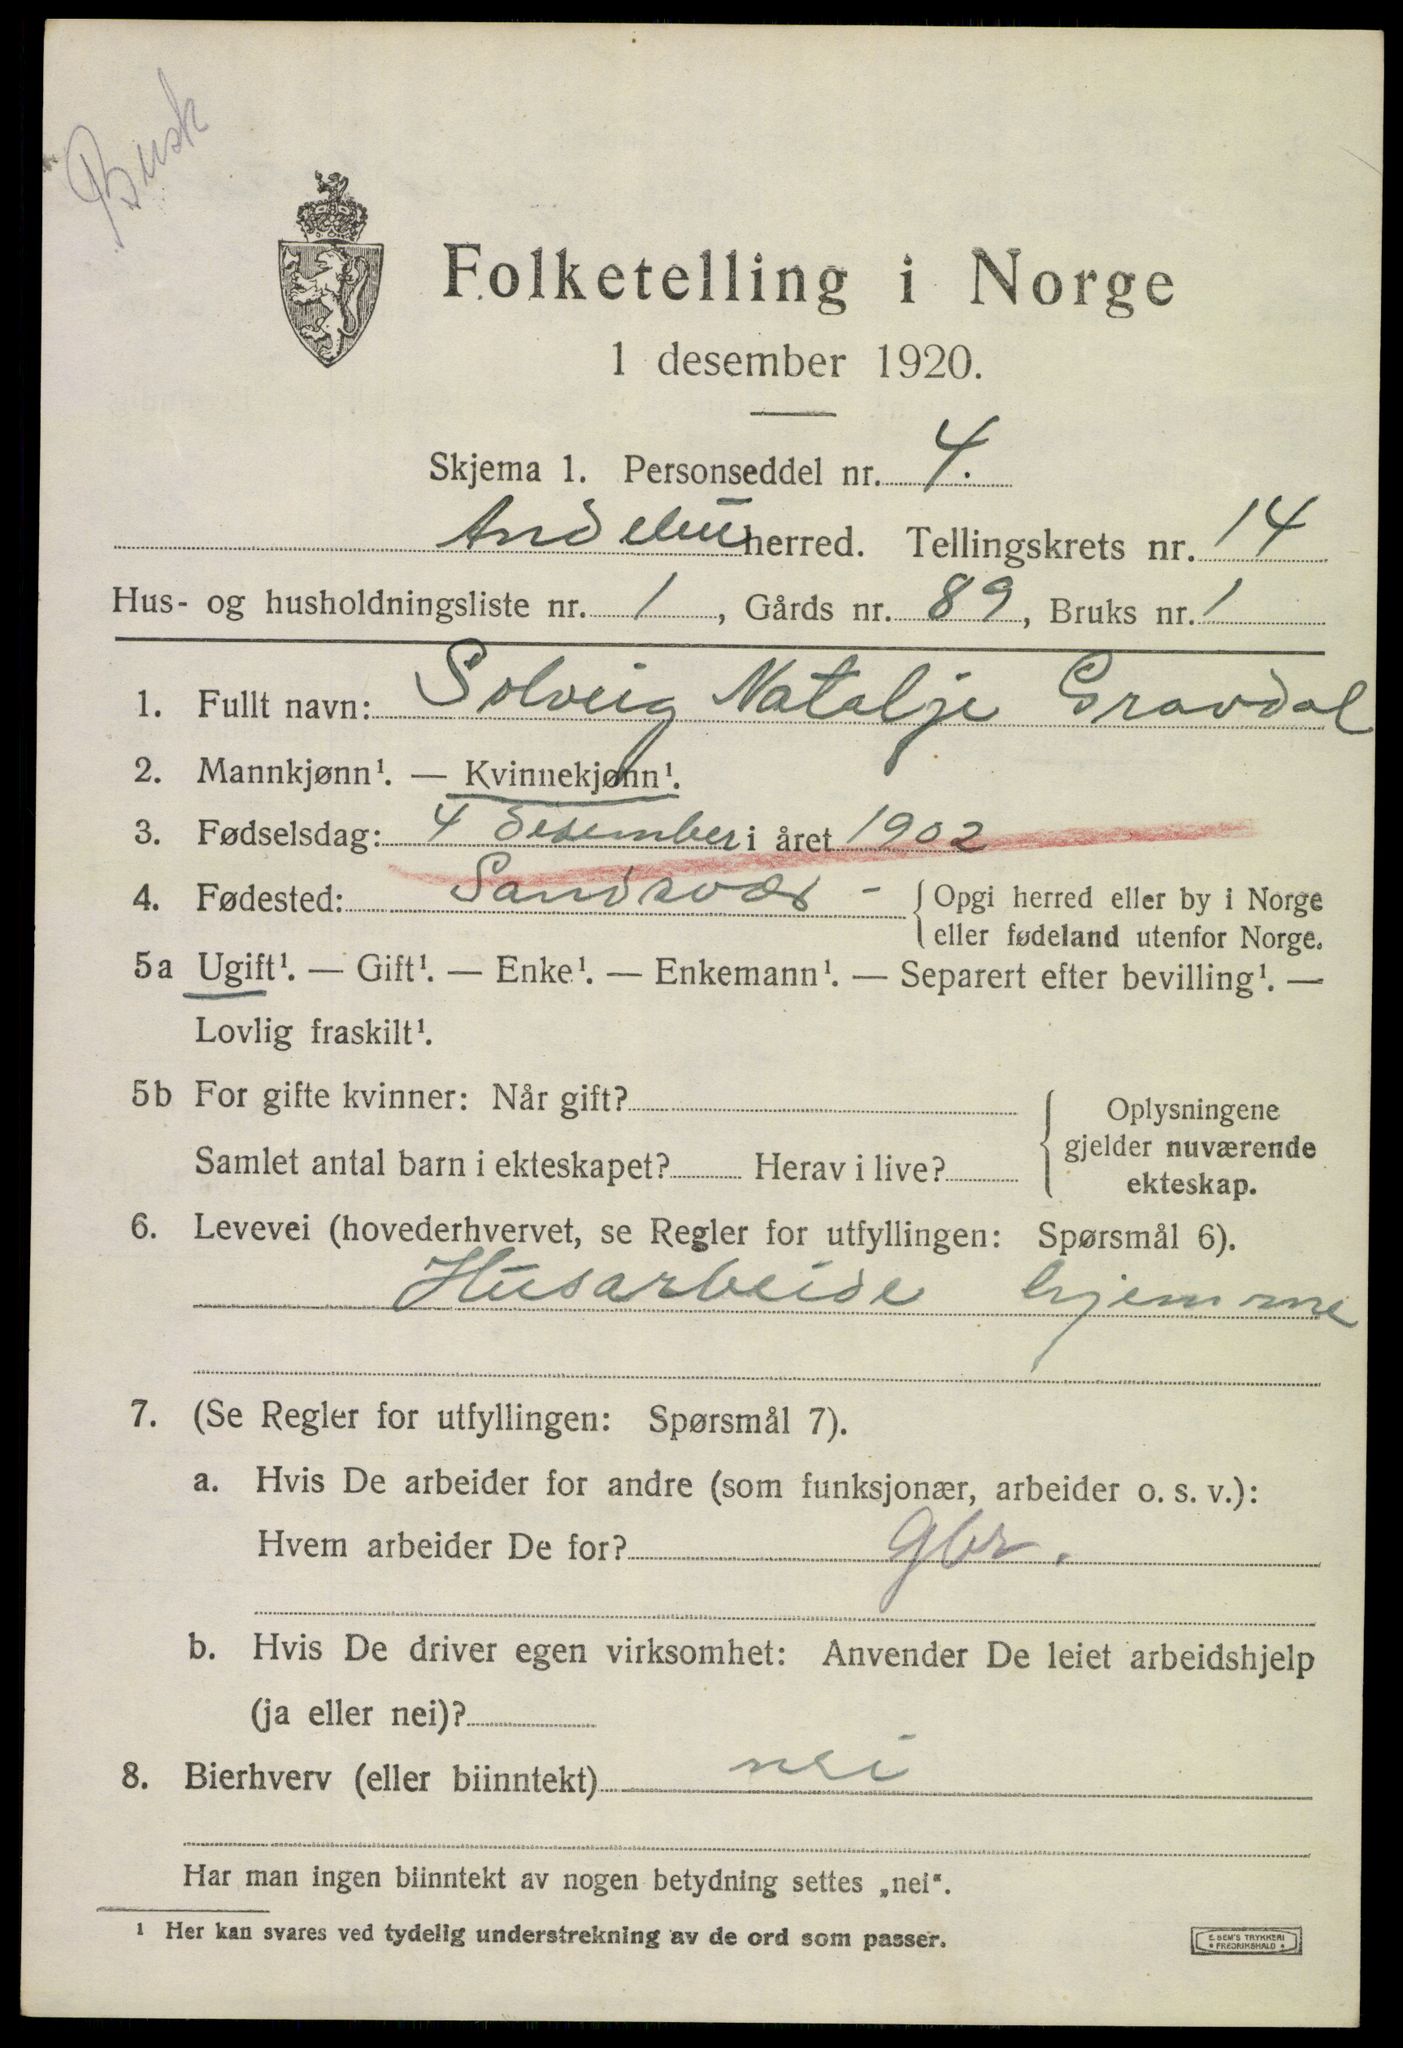 Busk
Folketelling i Norge
1 desember 1920.
Skjema 1. Personseddel nr. 4.
Andebu herred. Tellingskrets nr. 14
Hus- og husholdningsliste nr. 1, Gårds nr. 89, Bruks nr. 1
1. Fullt navn: Solveig Natalje Gravdal
2. Mannkjønn¹. — Kvinnekjønn¹.
3. Fødselsdag: 4 desember i året 1902
4. Fødested: Sandsvær - Opgi herred eller by i Norge
eller fødeland utenfor Norge.
5a Ugift¹. — Gift¹. — Enke¹. — Enkemann¹. — Separert efter bevilling¹. —
Lovlig fraskilt¹.
5b For gifte kvinner: Når gift?
Samlet antal barn i ekteskapet? Herav i live?
Oplysningene
gjelder nuværende
ekteskap.
6. Levevei (hovederhvervet, se Regler for utfyllingen: Spørsmål 6).
Husarbeide hjemme
7. (Se Regler for utfyllingen: Spørsmål 7).
a. Hvis De arbeider for andre (som funksjonær, arbeider o. s. v.):
Hvem arbeider De for? Gbr.
b. Hvis De driver egen virksomhet: Anvender De leiet arbeidshjelp
(ja eller nei)?
8. Bierhverv (eller biinntekt) nei
Har man ingen biinntekt av nogen betydning settes „nei“.
¹ Her kan svares ved tydelig understrekning av de ord som passer.
E. SEM'S TRYKKERI
* FREDRIKSHALD *